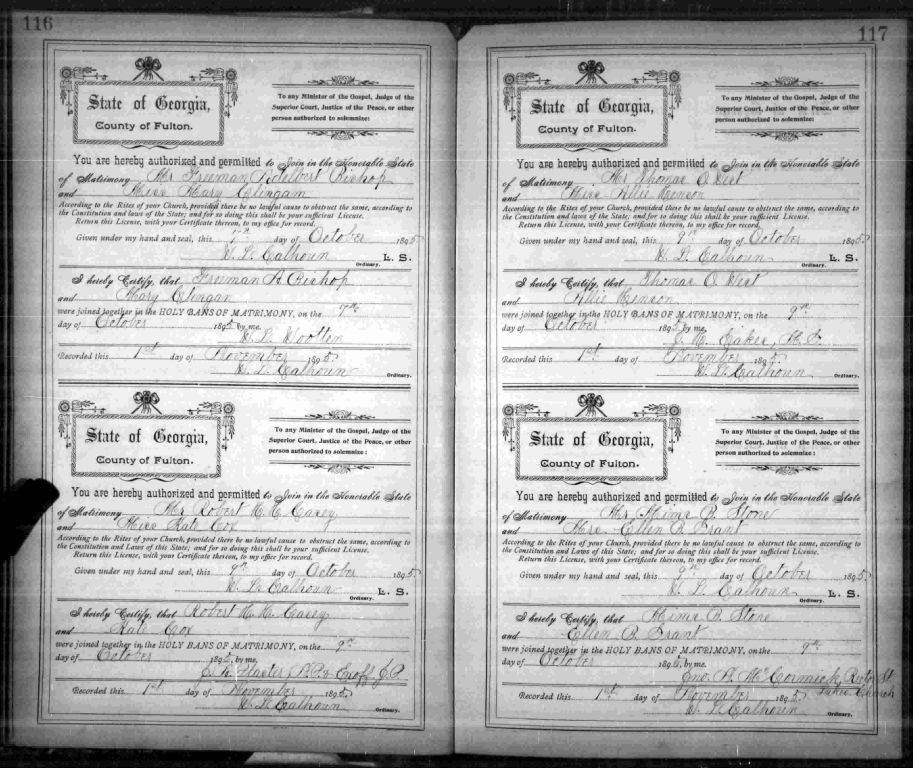 116
State of Georgia,
County of Fulton.
To any Minister of the Gospel, Judge of the
Superior Court, Justice of the Peace, or other
person authorized to solemnize:
You are hereby authorized and permitted to Join in the Honorable State
of Matrimony Mr Freeman Adelbert Bishop
and Miss Mary Clingan
According to the Rites of your Church, provided there be no lawful cause to obstruct the same, according to
the Constitution and laws of the State; and for so doing this shall be your sufficient License.
Return this License, with your Certificate thereon, to my office for record.
Given under my hand and seal, this 7th day of October 1895
W. L. Calhoun L. S.
Ordinary.
I hereby Certify, that Freeman A Bishop
and Mary Clingan
were joined together in the HOLY BANS OF MATRIMONY, on the 7th
day of October 1895 by me,
W. L. Wootten
Recorded this 1st day of November 1895
W. L. Calhoun Ordinary.
State of Georgia,
County of Fulton.
To any Minister of the Gospel, Judge of the
Superior Court, Justice of the Peace, or other
person authorized to solemnize:
You are hereby authorized and permitted to Join in the Honorable State
of Matrimony Mr Robert Casey
and Miss Kate Cox
According to the Rites of your Church, provided there be no lawful cause to obstruct the same, according to
the Constitution and Laws of this State; and for so doing this shall be your sufficient License.
Return this License, with your Certificate thereon, to my office for record.
Given under my hand and seal, this 9th day of October 1895
W. L. Calhoun L. S.
Ordinary.
I hereby Certify, that Robert Casey
and Kate Cox
were joined together in the HOLY BANS OF MATRIMONY, on the 9th
day of October 1895, by me,
J. P.
Recorded this 1st day of November 1895
W. L. Calhoun Ordinary.
117
State of Georgia,
County of Fulton.
To any Minister of the Gospel, Judge of the
Superior Court, Justice of the Peace, or other
person authorized to solemnize:
You are hereby authorized and permitted to Join in the Honorable State
of Matrimony Mr Thomas O. West
and Miss Allie Henson
According to the Rites of your Church, provided there be no lawful cause to obstruct the same, according to
the Constitution and laws of the State; and for so doing this shall be your sufficient License.
Return this License, with your Certificate thereon, to my office for record.
Given under my hand and seal, this 9th day of October 1895
W. L. Calhoun L. S.
Ordinary.
I hereby Certify, that Thomas O. West
and Allie Henson
were joined together in the HOLY BANS OF MATRIMONY, on the 9th
day of October 1895 by me,
Eakes,
Recorded this 1st day of November 1895
W. L. Calhoun Ordinary.
State of Georgia,
County of Fulton.
To any Minister of the Gospel, Judge of the
Superior Court, Justice of the Peace, or other
person authorized to solemnize:
You are hereby authorized and permitted to Join in the Honorable State
of Matrimony Mr Mims B. Stone
and Miss Ellen B. Grant
According to the Rites of your Church, provided there be no lawful cause to obstruct the same, according to
the Constitution and Laws of this State; and for so doing this shall be your sufficient License.
Return this License, with your Certificate thereon, to my office for record.
Given under my hand and seal, this day of October 1895
W. L. Calhoun L. S.
Ordinary.
I hereby Certify, that Mims B. Stone
and Ellen B. Grant
were joined together in the HOLY BANS OF MATRIMONY, on the 9th
day of October 1895, by me,
Jno. N. McCormick, Rector St
Lukes Church
Recorded this 1st day of November 1895
W. L. Calhoun Ordinary.